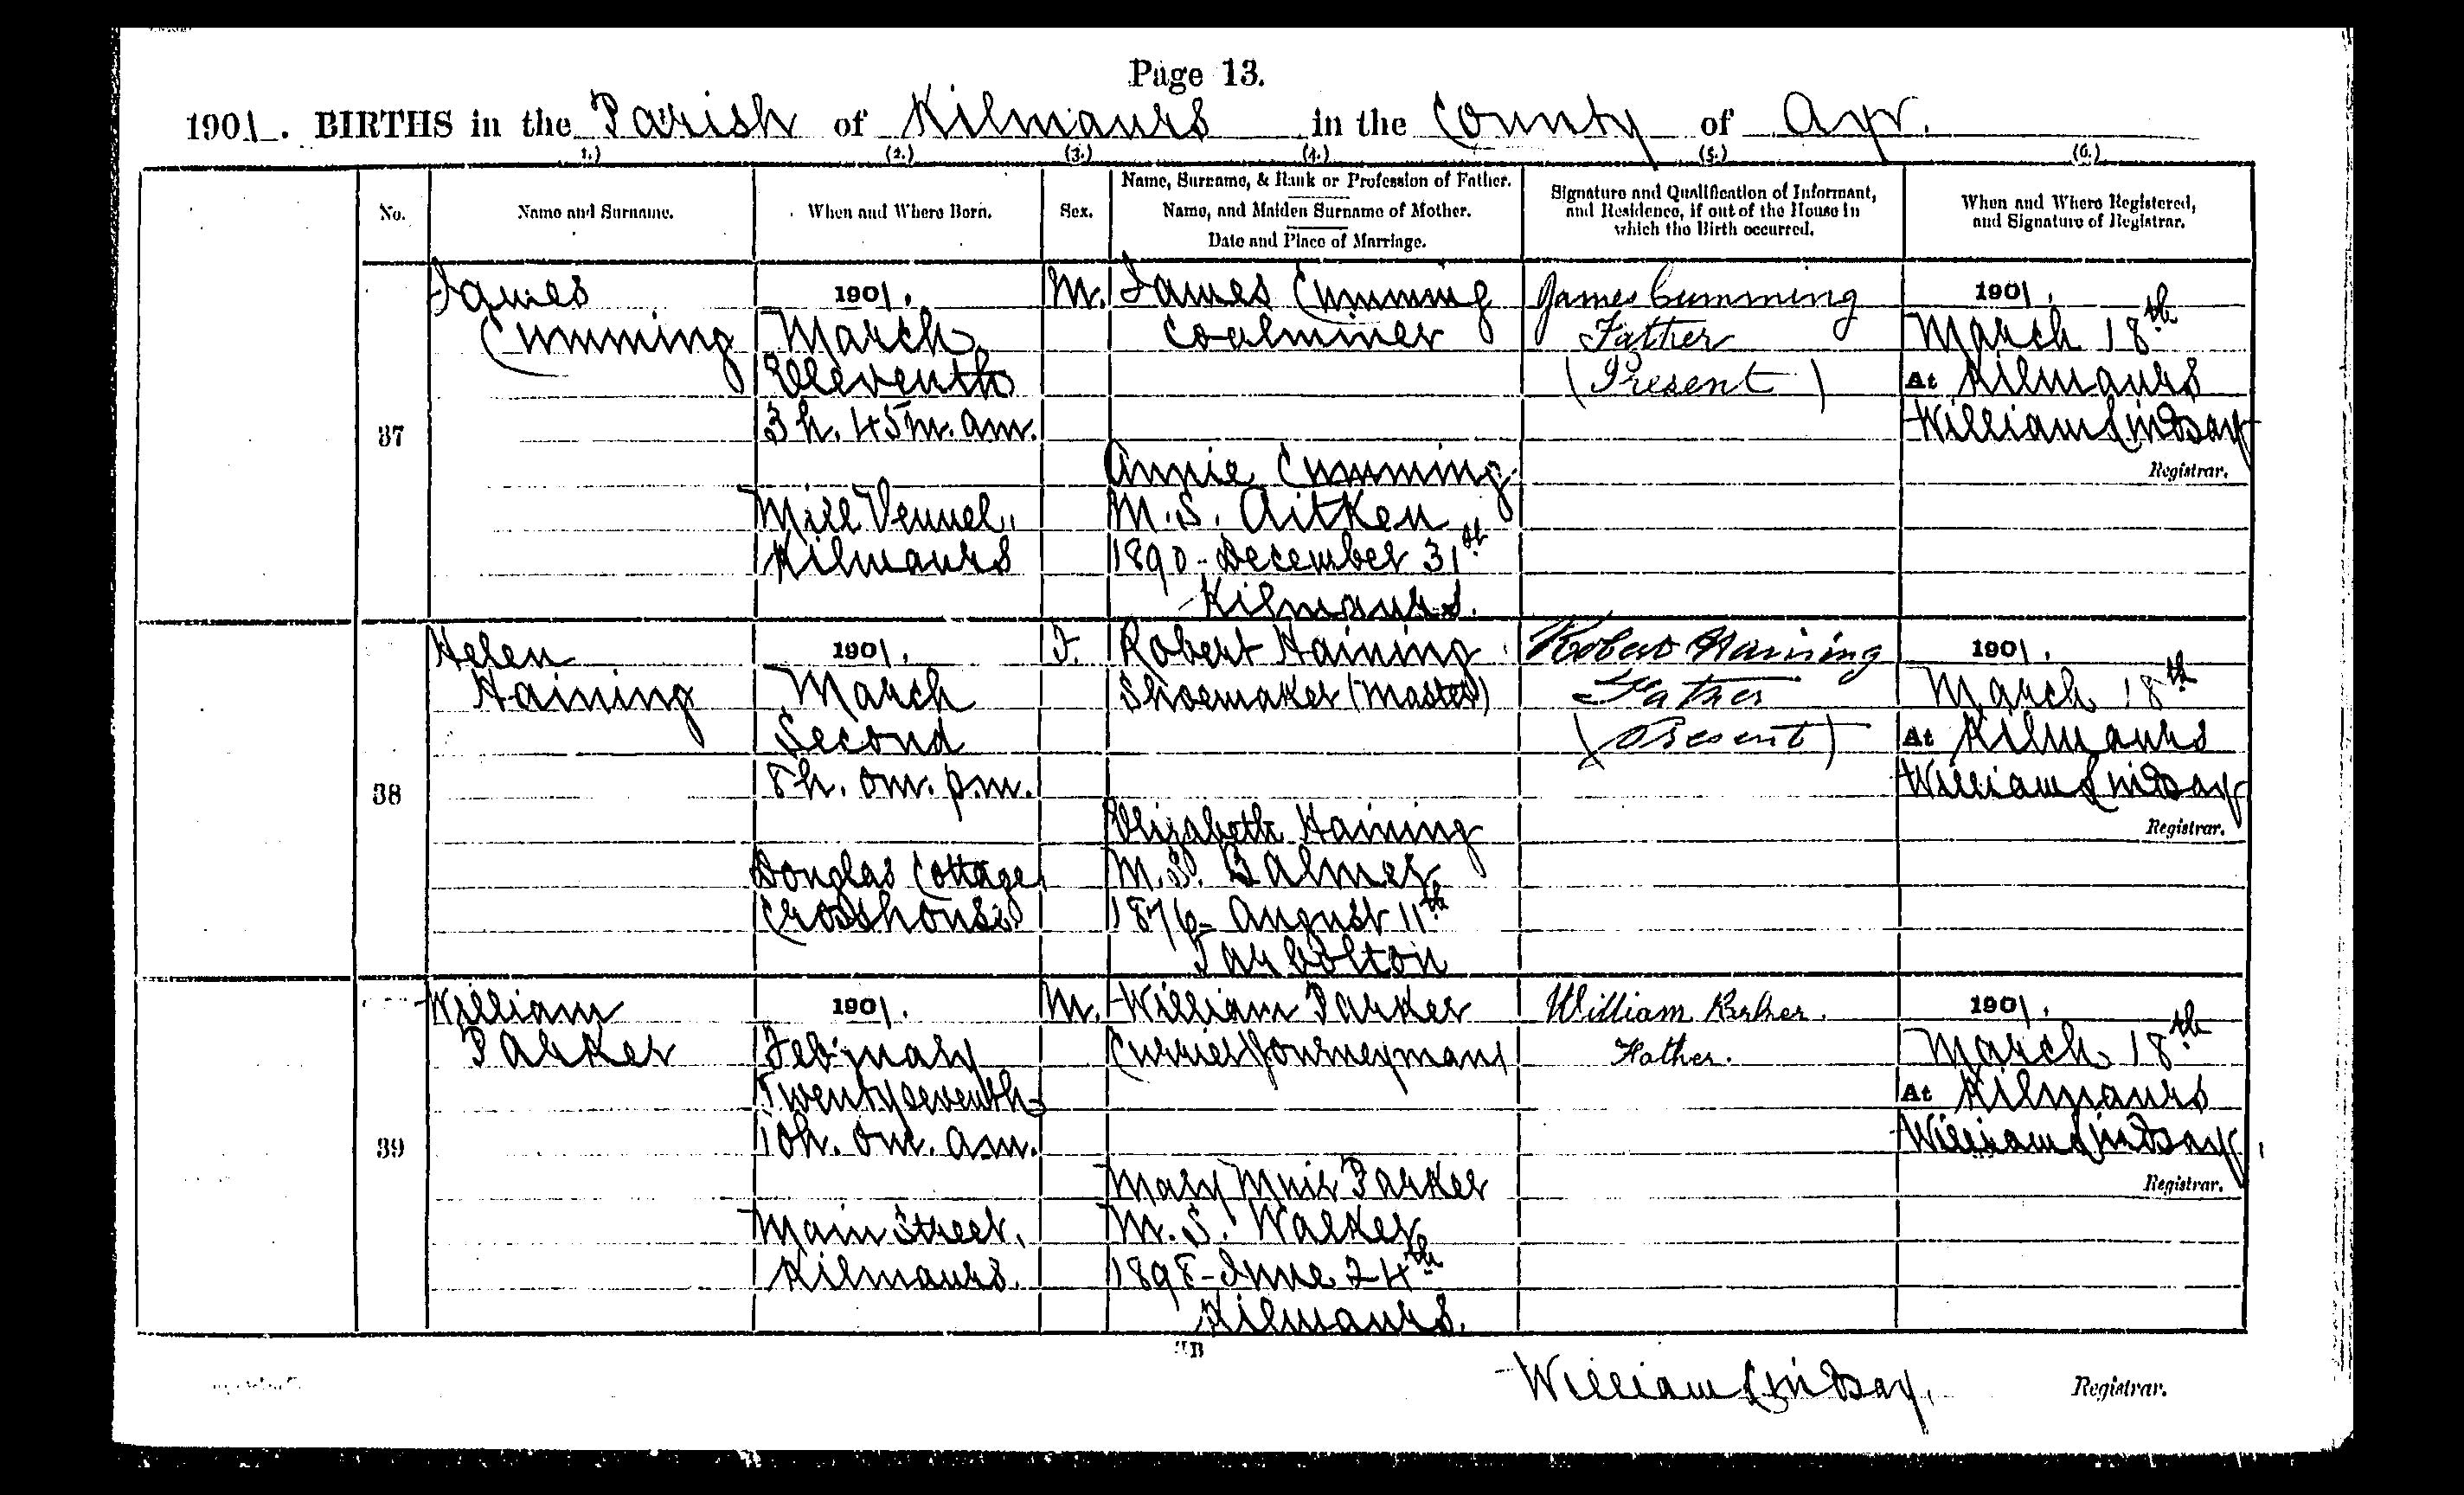 Page 13.
1901. BIRTHS in the Parish of Kilmaurs in the County of Ayr.
1.) (2.) (3.) (4.) (5.) (6.)
No.
Name and Surname.
When and Where Born.
Sex.
Name, Surname, & Rank or Profession of Father.
Name, and Maiden Surname of Mother.
Date and Place of Marriage.
Signature and Qualification of Informant,
and Residence, if out of the House in
which the Birth occurred.
When and Where Registered,
and Signature of Registrar.
37
James
Cumming
1901.
March
Eleventh
3h. 45m. am.
Mill Vennel,
Kilmaurs
M.
James Cumming
Coalminer
Annie Cumming
M.S. Aitken
1890 - December 31st
Kilmaurs.
James Cumming
Father
(Present)
1901.
March 18th
At Kilmaurs
William Lindsay
Registrar.
38
Helen
Haining
1901.
March
Second
8h. 0m. p.m.
Douglas Cottage
Crosshouse
F.
Robert Haining
Shoemaker (Master)
Elizabeth Haining
M.S. Balmer
1876 - August 11th
Tarbolton
Robert Haining
Father
(Present)
1901.
March 18th
At Kilmaurs
William Lindsay
Registrar.
39
William
Parker
1901.
February
Twentyseventh
10h. 0m. a.m.
Main Street,
Kilmaurs.
M.
William Parker
Currier (Journeyman)
Mary Muir Parker
M.S. Walker
1898 - June 24th
Kilmaurs.
William Parker.
Father.
1901.
March 18th
At Kilmaurs
William Lindsay
Registrar.
William Lindsay, Registrar.